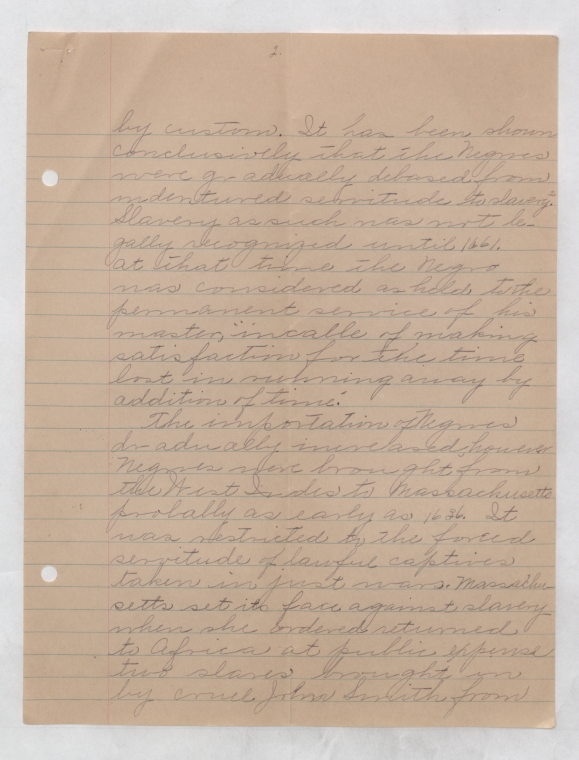 2.
by custom. It has been shown
conclusively that the Negroes
were gradually debased from
indentured servitude to slavery.2
Slavery as such was not le-
gally recognized until 1661.
at that time the Negro
was considered as held to the
permanent service of his
master, "incalle of making
satisfaction for the time
lost in running away by
addition of time."
The importation of Negroes
dradually increased; however
Negroes were brought from
the West Indes to Massachusetts
probally as early as 1636. It
was restricted to the forced
servitude of lawful captives
taken in just wars. Massachu-
setts set its face against slavery
when she ordered returned
to Africa at public expense
two slaves brought in
by cruel John Smith from